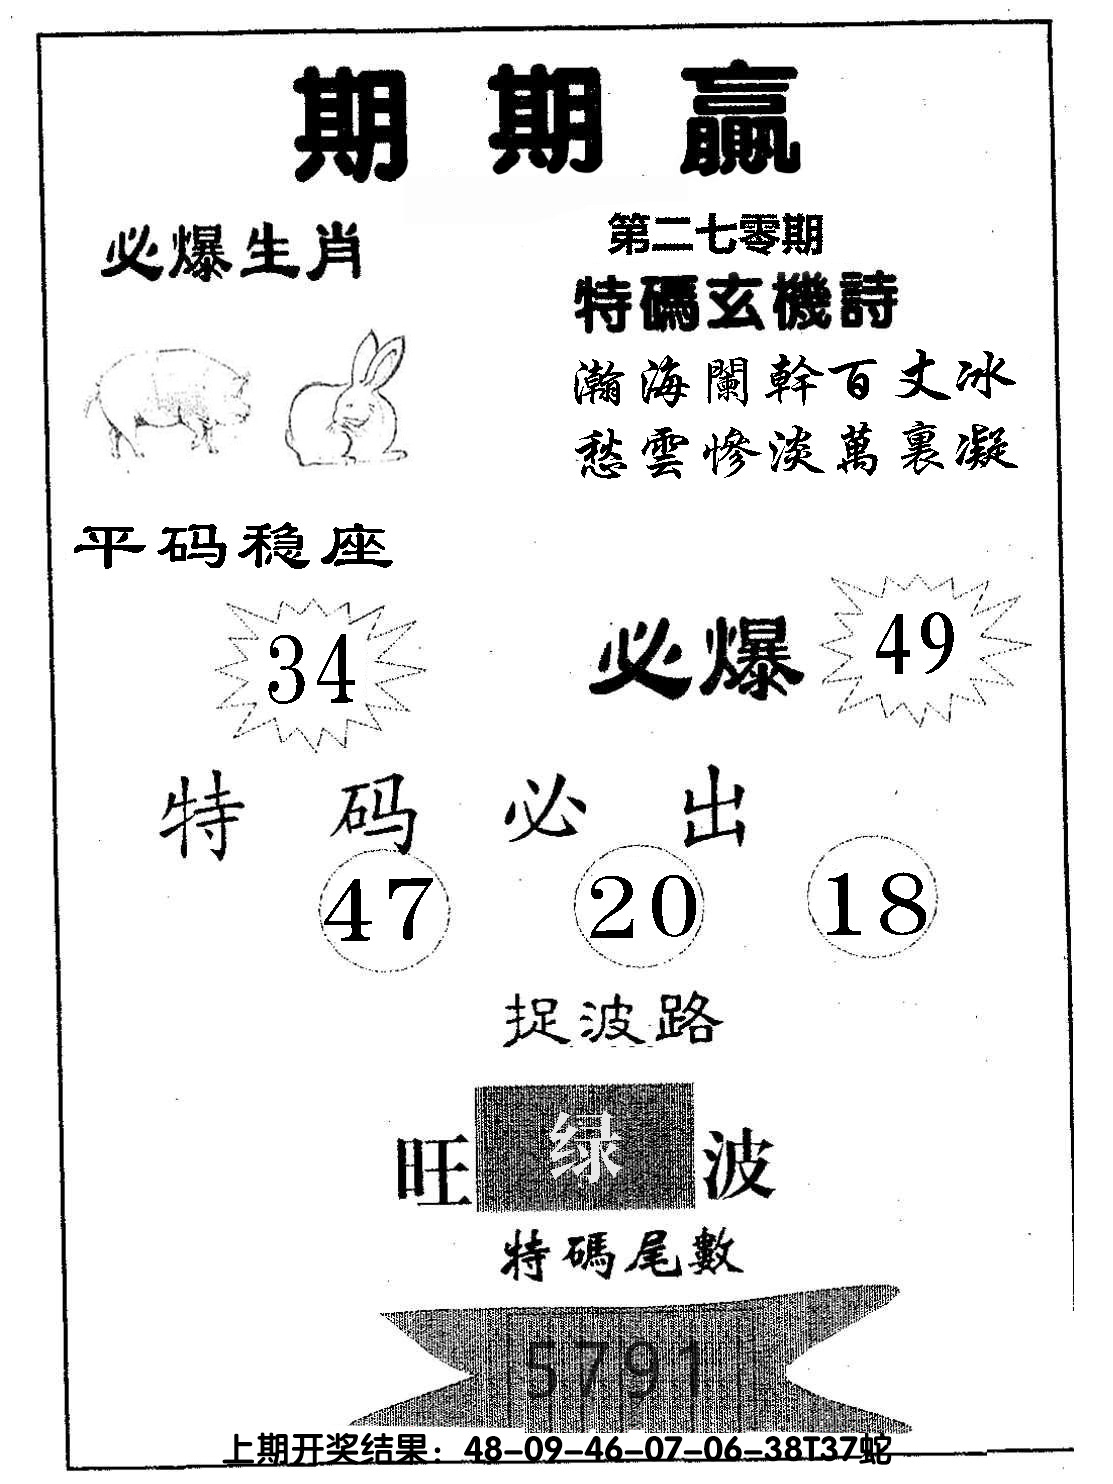 期期赢
必爆生肖
第二七零期
特碼玄機詩
瀚海闌幹百丈冰
愁雲慘淡萬裏凝
平码稳座
34
必爆 49
特码必出
47 20 18
捉波路
旺 绿 波
特碼尾數
5791
上期开奖结果：48-09-46-07-06-38T37蛇